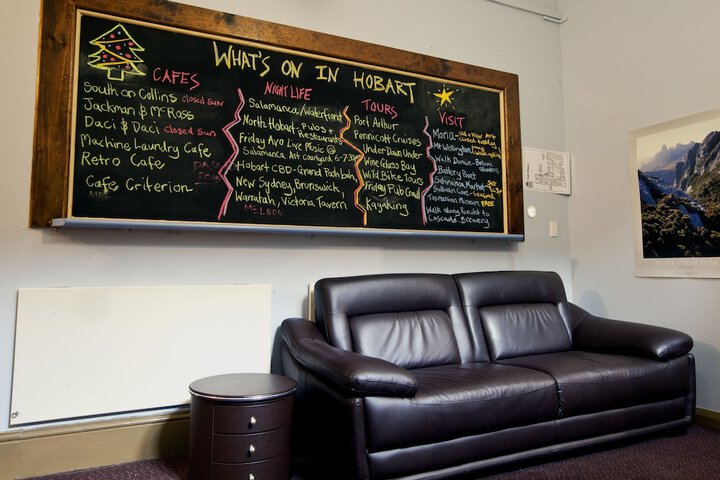 WHAT'S ON IN HOBART
CAFES
South on Collins closed Sun
Jackman & McRoss
Daci & Daci closed Sun
Machine Laundry Cafe
Retro Cafe
Cafe Criterion
NIGHT LIFE
Salamanca/Waterfront
North Hobart - Pubs + Restaurants
Friday Avo Live Music @
Salamanca Art courtyard 6-7:30
Hobart CBD - Grand Poobah
New Sydney, Brunswick,
Warratah, Victoria Tavern
TOURS
Port Arthur
Pennicott Cruises
Under Down Under
Wine Glass Bay
Wild Bike Tours
Friday Pub Crawl
Kayaking
VISIT
Mona
Mt Wellington
Walk Domain - Botanic
Gardens
Battery Point
Salamanca Market
Sullivan Cove - seafood
Tasmanian Museum FREE
Walk along Rivulet to
Cascade Brewery